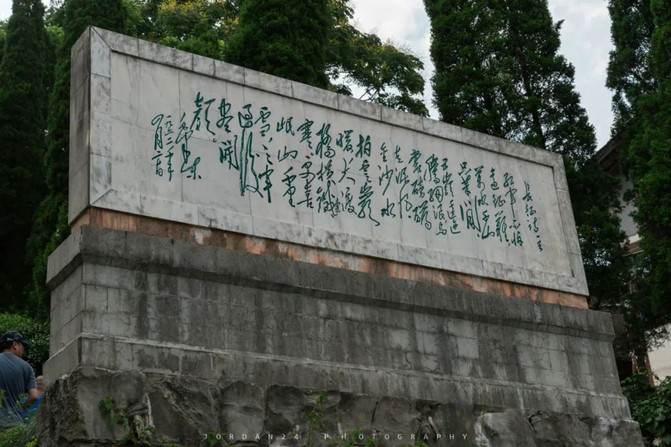 长征诗一首
红军不怕
远征难
万水千山
只等闲
五岭逶迤
腾细浪乌
蒙磅礴
走泥丸
金沙水
拍云崖
暖大渡
桥横铁索
寒更喜
岷山千里
雪三军
过后
尽开
颜
毛泽东
JORDAN24 PHOTOGRAPHY